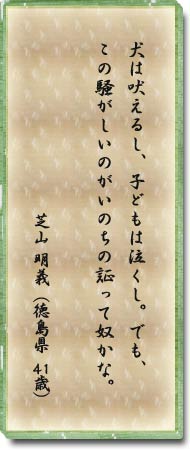 犬は吠えるし、子どもは泣くし。でも、
この騒がしいのがいのちの証って奴かな。
芝山 明義 (徳島県 41歳)